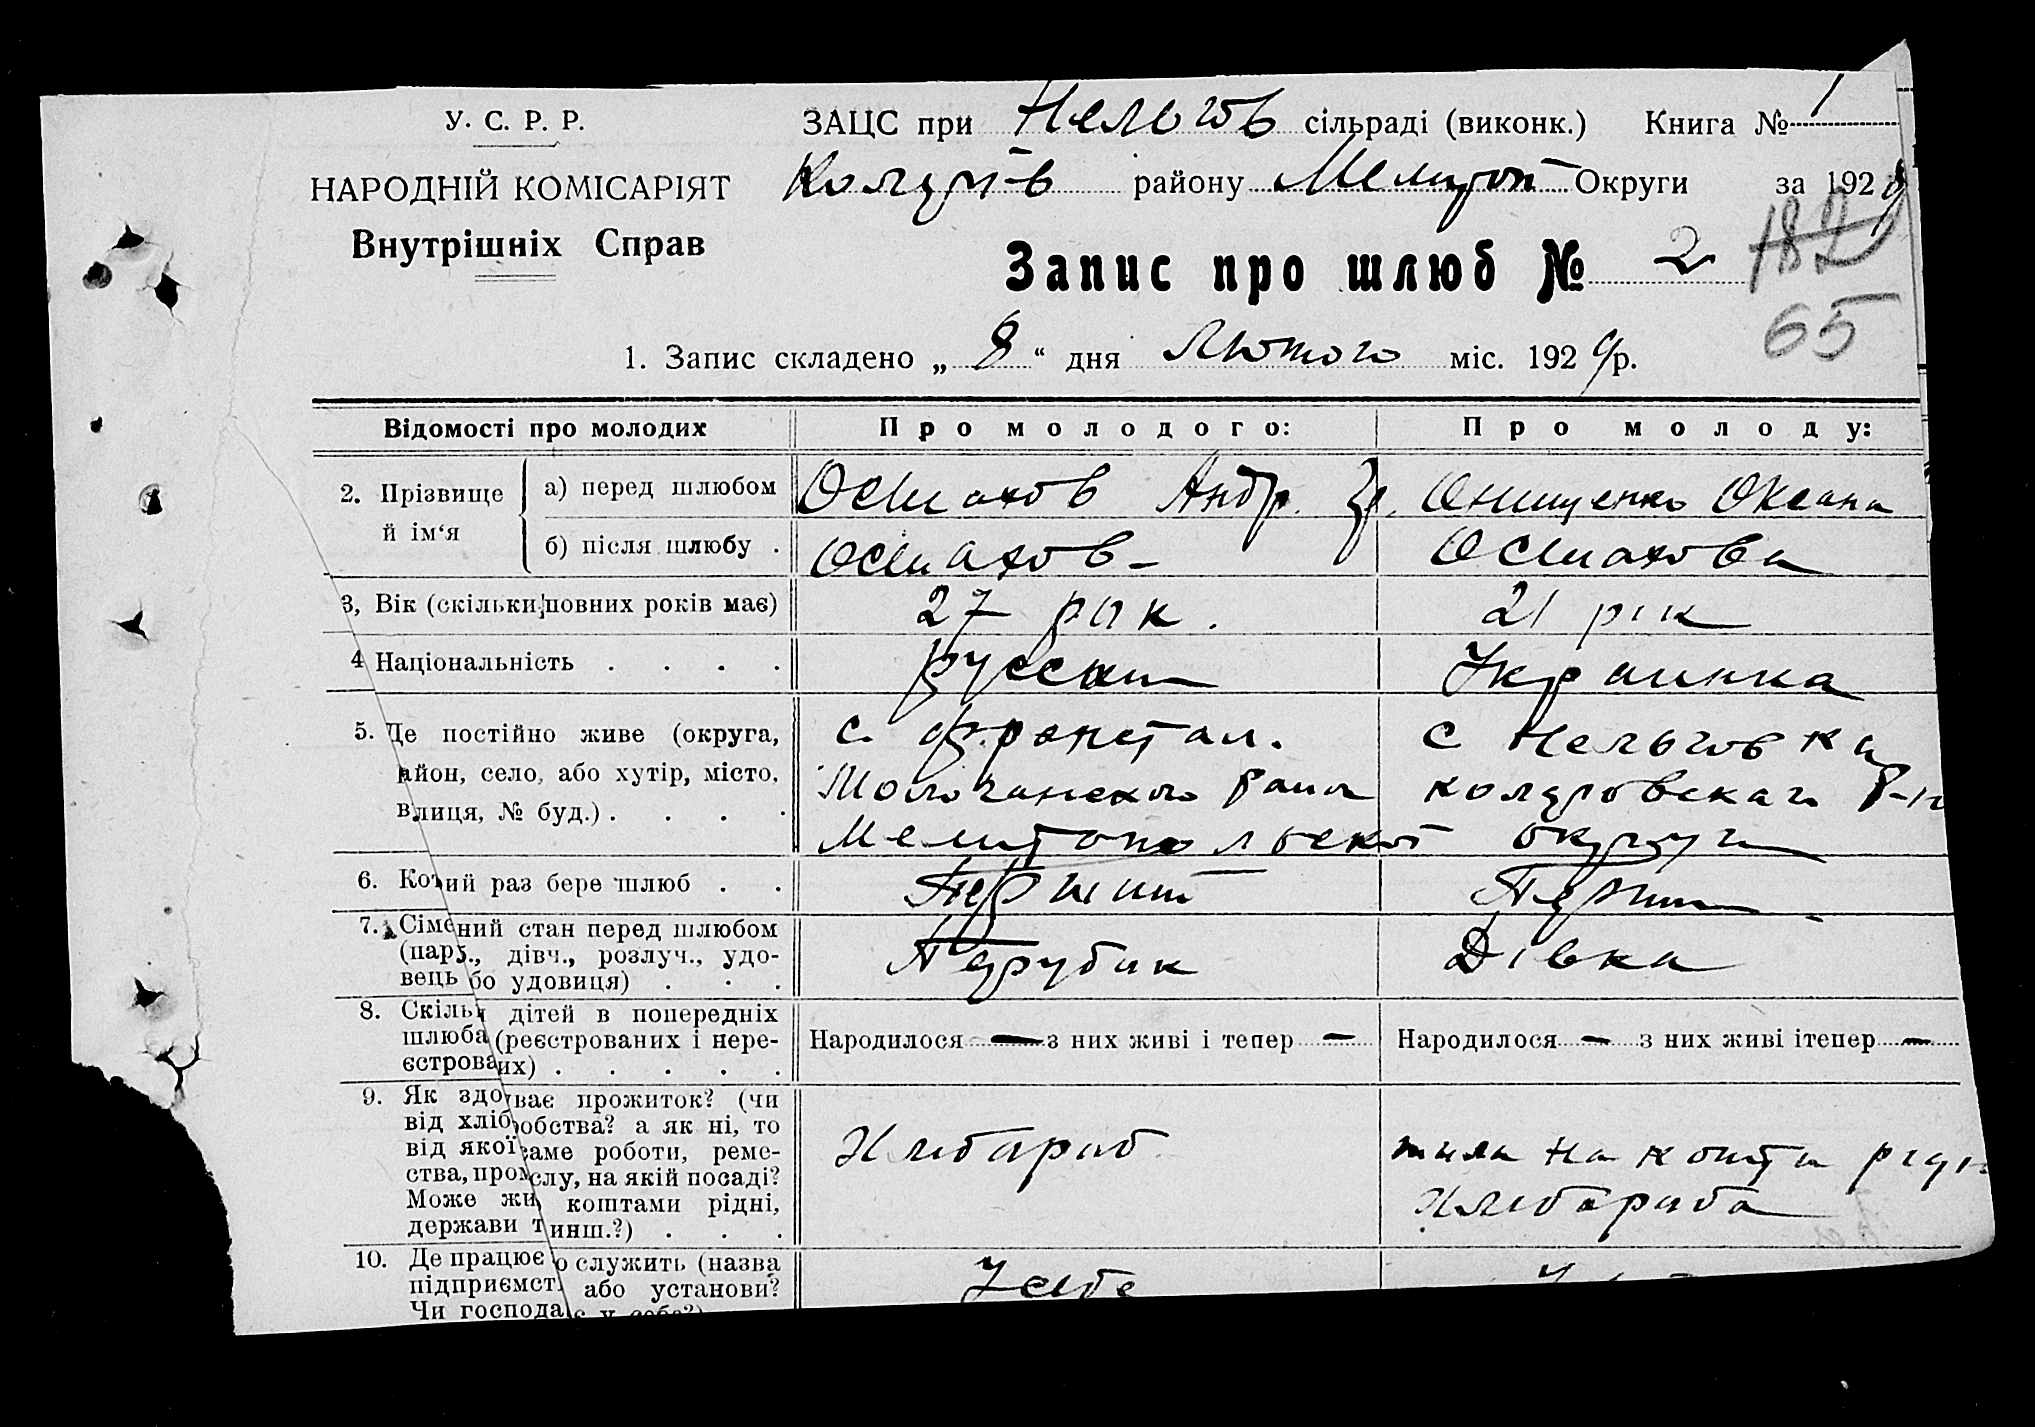 У. С. Р. Р.
НАРОДНІЙ КОМІСАРІЯТ
Внутрішніх Справ
ЗАЦС при Нельгов сільраді (виконк.) Книга № 1
району Мелитоп Округи за 192
Запис про шлюб № 2
182
65
1. Запис складено „ 8 “ дня Лютого міс. 1929 р.
Відомості про молодих
Про молодого:
Про молоду:
2. Прізвище й ім‘я
а) перед шлюбом
Осташов Андр. Гр.
Онищенко Оксана
б) після шлюбу .
Осташов
Осташова
3, Вік (скільки повних років має)
27 рік.
21 рік
4 Національність . . . .
русский
Украинка
5. Де постійно живе (округа,
айон, село, або хутір, місто,
влиця, № буд.) . . . .
с.
Молочанского район
Мелитопольской округи
с Нельговка
р-н
6. Котий раз бере шлюб . .
Перший
Перший
7. Сімений стан перед шлюбом
(пар., дівч., розлуч., удо-
вець бо удовиця) . . .
Парубок
Дівка
8. Скільк дітей в попередніх
шлюба (реєстрованих і нере-
єстрованих) . . . . .
Народилося — з них живі і тепер —
Народилося — з них живі ітепер —
9. Як здоуває прожиток? (чи
від хліборобства? а як ні, то
від якої саме роботи, реме-
ства, промслу, на якій посаді?
Може жи коштами рідні,
держави т инш.?) . . .
Хлібороб
жила на кошти рідн
хлібороба
10. Де працює о служить (назва
підприємст. або установи?
Чи господа є у себе?)
У себе